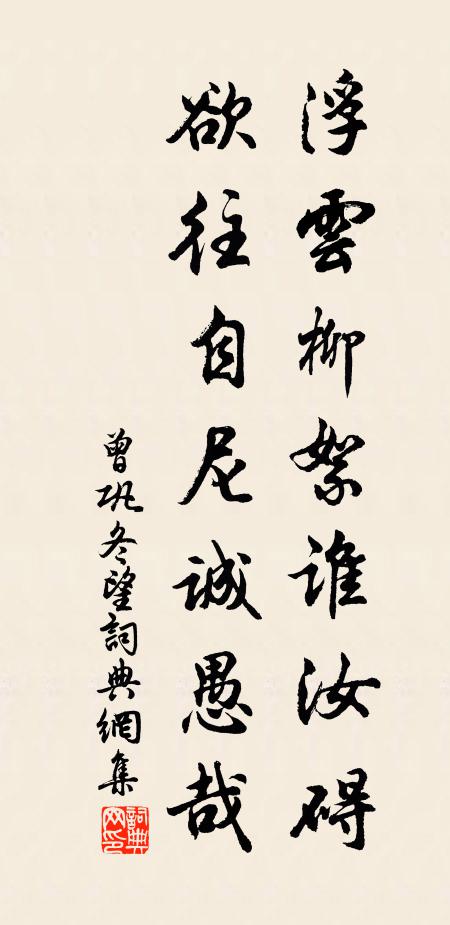 浮雲柳絮誰汝碍
欲往自尼誠愚哉
曾巩冬望詞典網集
詞典网印